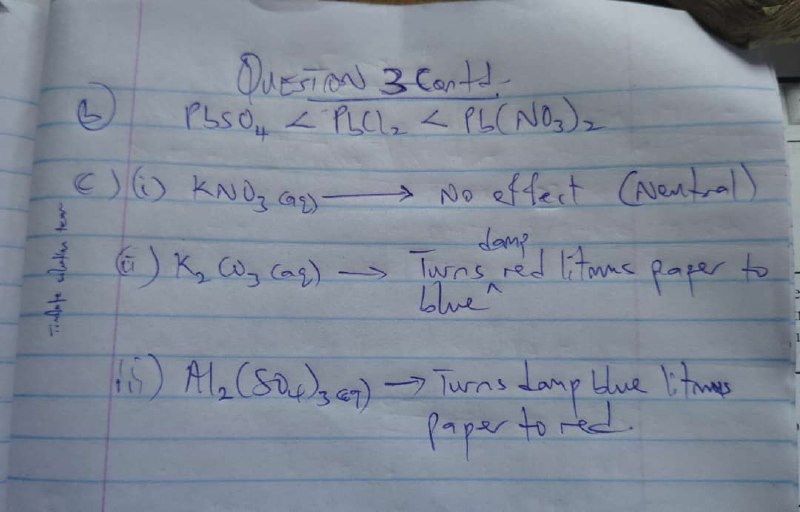 QUESTION 3 Contd.
b) PbSO4 < PbCl2 < Pb(NO3)2
c) (i) KNO3 (aq) → No effect (Neutral)
damp
(ii) K2CO3 (aq) → Turns ^ red litmus paper to
blue
iii) Al2(SO4)3 (aq) → Turns damp blue litmus
paper to red.